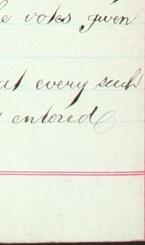 e votes given
at every such
entered